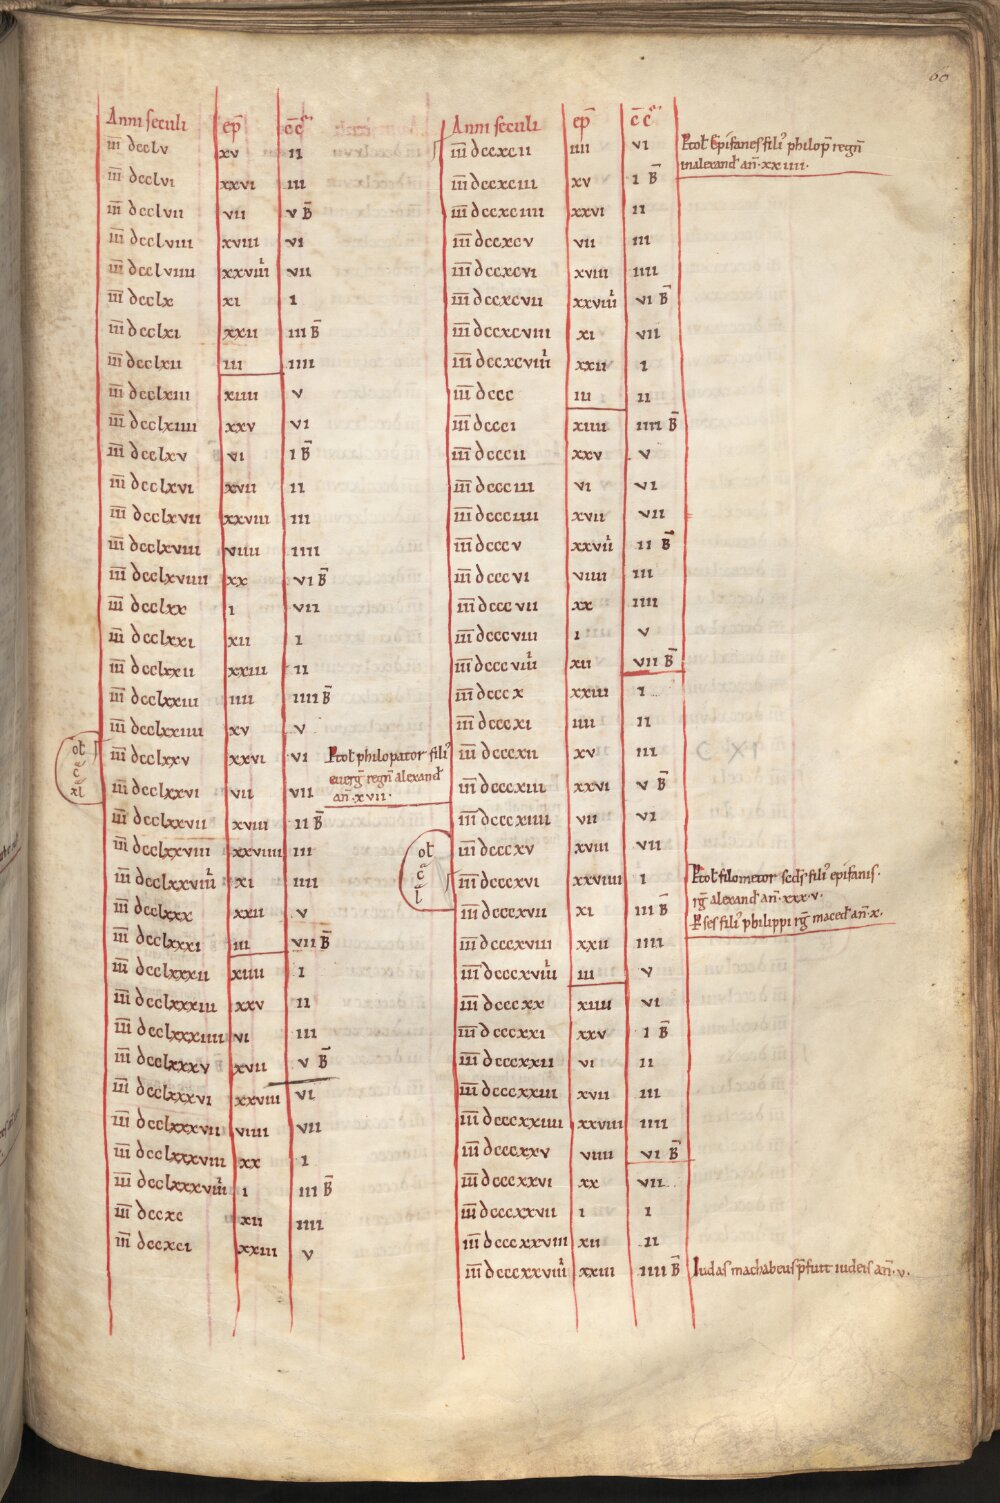 60
Anni seculi ep̄ c̄c̄
iii̅ dcclv xv ii
iii̅ dcclvi xxvi iii
iii̅ dcclvii vii v B̄
iii̅ dcclviii xviii vi
iii̅ dcclviiii xxviiii vii
iii̅ dcclx xi i
iii̅ dcclxi xxii iii B̄
iii̅ dcclxii iii iiii
iii̅ dcclxiii xiiii v
iii̅ dcclxiiii xxv vi
iii̅ dcclxv vi i B̄
iii̅ dcclxvi xvii ii
iii̅ dcclxvii xxviii iii
iii̅ dcclxviii viiii iiii
iii̅ dcclxviiii xx vi B̄
iii̅ dcclxx i vii
iii̅ dcclxxi xii i
iii̅ dcclxxii xxiii ii
iii̅ dcclxxiii iiii iiii B̄
iii̅ dcclxxiiii xv v
ol̅
c
c
xl
iii̅ dcclxxv xxvi vi Ptol̅ philopator fili᾽
euerg̅ regn̅ alexand̅
an̅·xvii·
iii̅ dcclxxvi vii vii
iii̅ dcclxxvii xviii ii B̄
iii̅ dcclxxviii xxviiii iii
iii̅ dcclxxviiii xi iiii
iii̅ dcclxxx xxii v
iii̅ dcclxxxi iii vii B̄
iii̅ dcclxxxii xiiii i
iii̅ dcclxxxiii xxv ii
iii̅ dcclxxxiiii vi iii
iii̅ dcclxxxv xvii v B̄
iii̅ dcclxxxvi xxviii vi
iii̅ dcclxxxvii viiii vii
iii̅ dcclxxxviii xx i
iii̅ dcclxxxviiii i iii B̄
iii̅ dccxc xii iiii
iii̅ dccxci xxiii v
Anni seculi ep̄ c̄c̄
iii̅ dccxcii iiii vi Ptol̅ Epifanes fili᾽ philop̅ regn̅
inalexand̅ an̅·xxiiii·
iii̅ dccxciii xv i B̄
iii̅ dccxciiii xxvi ii
iii̅ dccxcv vii iii
iii̅ dccxcvi xviii iiii
iii̅ dccxcvii xxviiii vi B̄
iii̅ dccxcviii xi vii
iii̅ dccxcviiii xxii i
iii̅ dccc iii ii
iii̅ dccci xiiii iiii B̄
iii̅ dcccii xxv v
iii̅ dccciii vi vi
iii̅ dccciiii xvii vii
iii̅ dcccv xxviii ii B̄
iii̅ dcccvi viiii iii
iii̅ dcccvii xx iiii
iii̅ dcccviii i v
iii̅ dcccviiii xii vii B̄
iii̅ dcccx xxiii i
iii̅ dcccxi iiii ii
iii̅ dcccxii xv iii
C XI
iii̅ dcccxiii xxvi v B̄
iii̅ dcccxiiii vii vi
iii̅ dcccxv xviii vii
ol̅
c
c
l
iii̅ dcccxvi xxviiii i Ptol̅ filometor scds̅ fili᾽ epifanis·
rg̅ alexand̅ an̅·xxxv·
Pses fili᾽ philippi rg̅ maced̅ an̅ x·
iii̅ dcccxvii xi iii B̄
iii̅ dcccxviii xxii iiii
iii̅ dcccxviiii iii v
iii̅ dcccxx xiiii vi
iii̅ dcccxxi xxv i B̄
iii̅ dcccxxii vi ii
iii̅ dcccxxiii xvii iii
iii̅ dcccxxiiii xxviii iiii
iii̅ dcccxxv viiii vi B̄
iii̅ dcccxxvi xx vii
iii̅ dcccxxvii i i
iii̅ dcccxxviii xii ii
iii̅ dcccxxviiii xxiii iiii B̄ Iudas machabeus p̄fuit iudeis an̅·v·